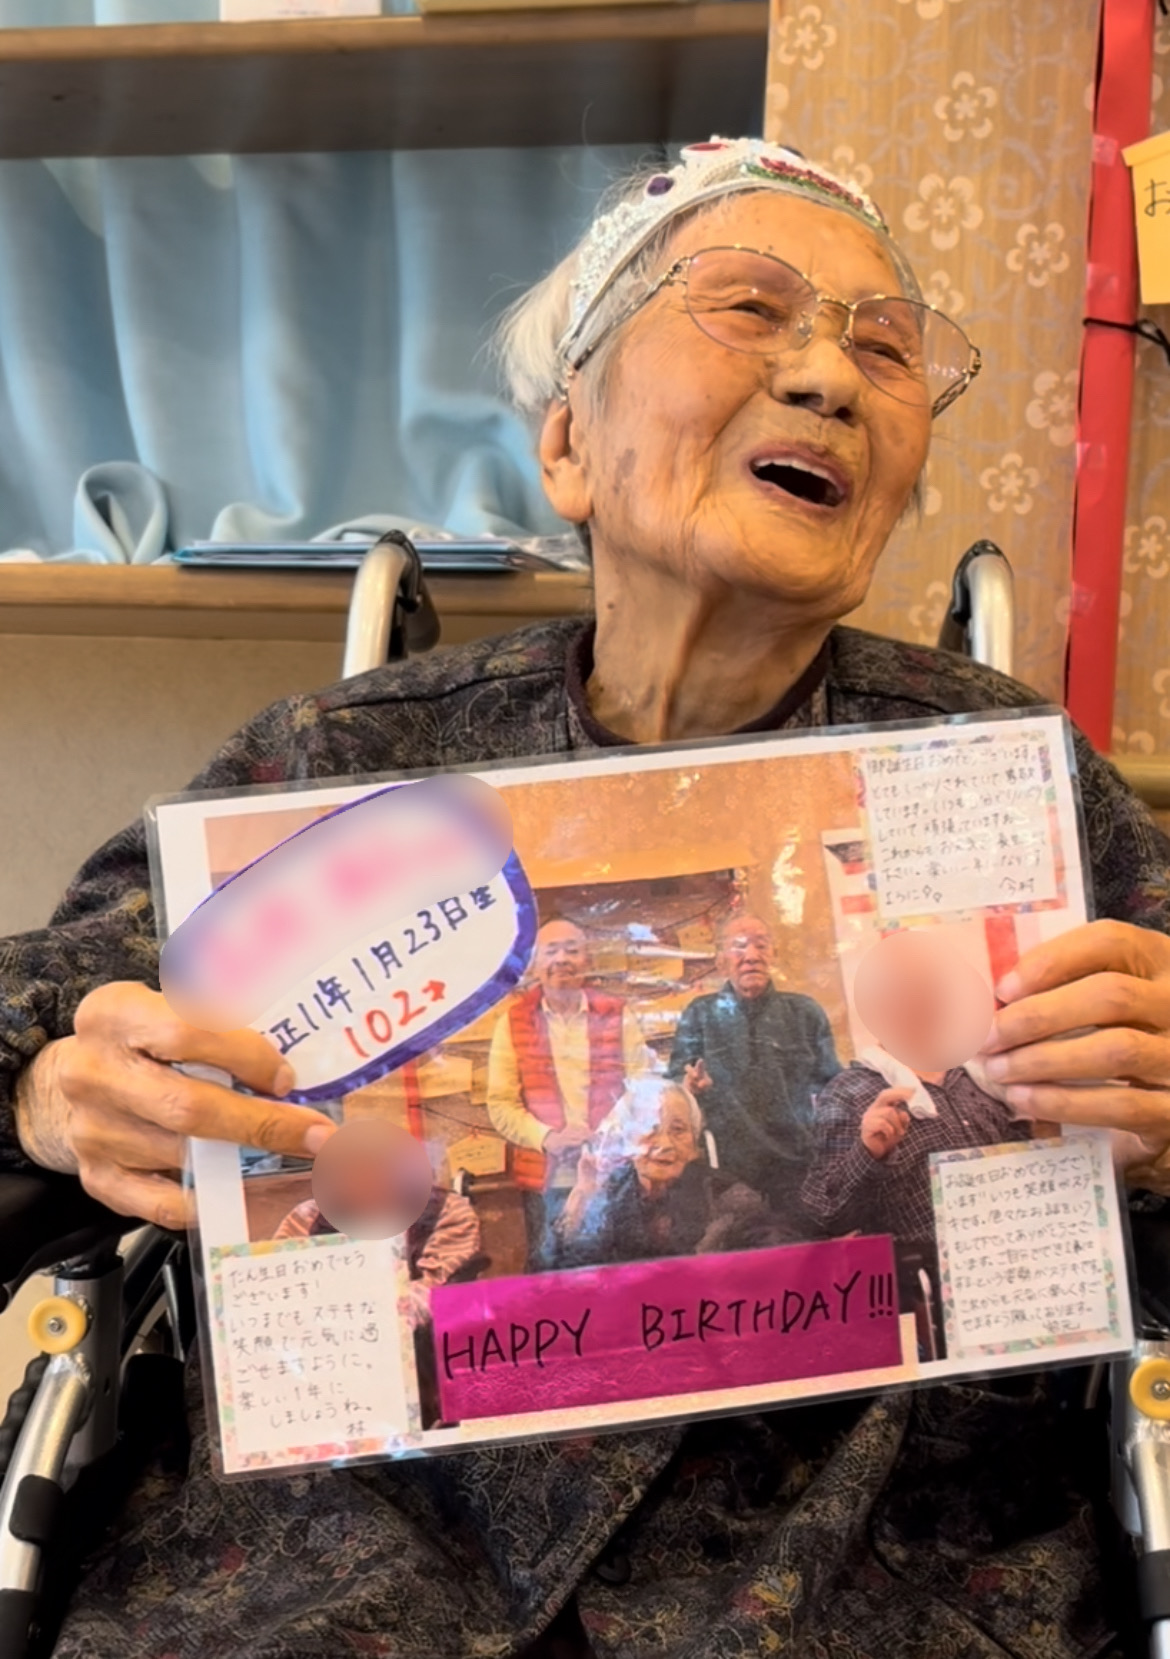 正11年1月23日生
102才
御誕生日おめでとうございます。
とてもしっかりされていて尊敬
しています。いつも
していて頑張っていますね。
これからもお元気で長生き
下さい。楽しい一年になります
ように
今村
たん生日おめでとう
ございます!
いつまでもステキな
笑顔で元気に過
ごせますように。
楽しい1年に
しましょうね。
林
HAPPY BIRTHDAY!!!
お誕生日おめでとうござ
います!!いつも笑顔がステ
キです。色々なお話をいつ
もして下さってありがとうござ
います。ご自分でできる事は
するという姿勢がステキです。
これからも元気に楽しくすご
せますよう願っております。
お